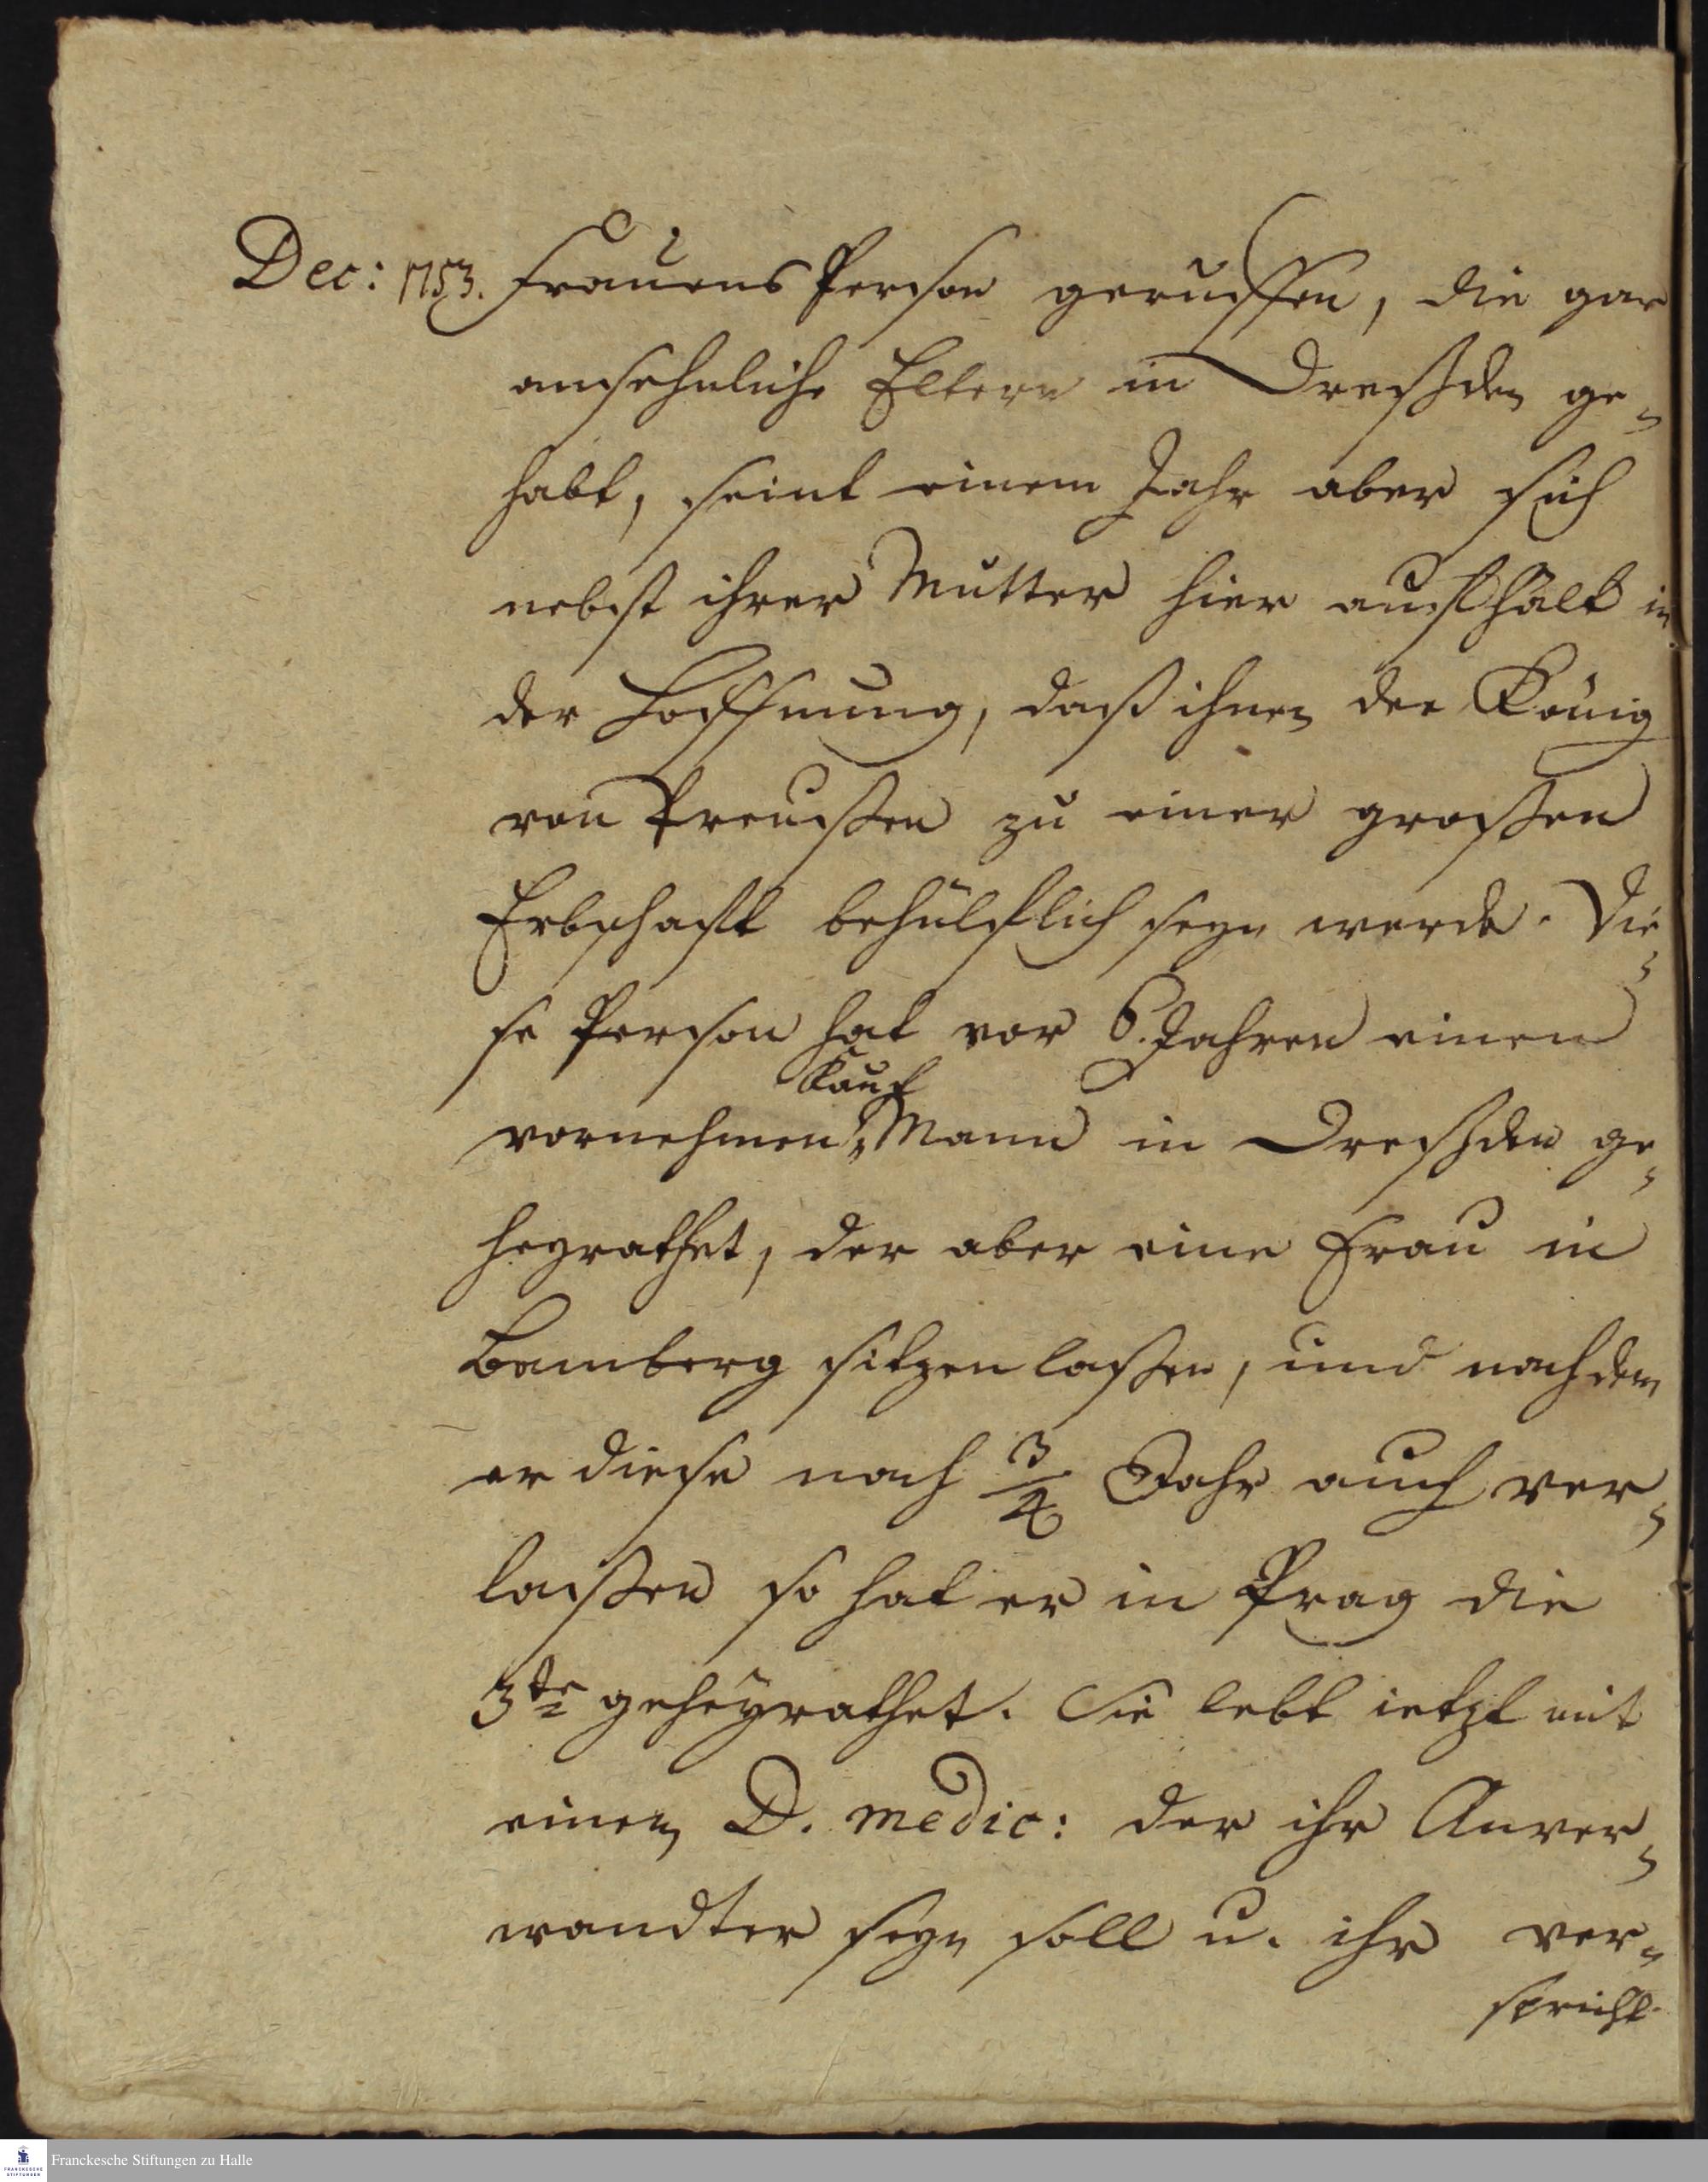 Dec: 1753. Frauens Person geruffen, die gar
ansehnliche Eltern in Dreßden ge-
habt, seint einem Jahr aber sich
nebst ihrer Mutter hier aufhält in
der Hoffnung, daß ihnen der König
von Preußen zu einer großen
Erbschafft behülflich seyn werde. Die-
se Person hat vor 6. Jahren einen
Kauf
vornehmen Mann in Dreßden ge-
heyrathet, der aber eine Frau in
Bamberg sitzen laßen, und nachdem
er diese nach 3/4 Jahr auch ver-
laßen so hat er in Prag die
3te geheyrathet. Sie lebt ietzt mit
einem D. medic: der ihr Anver-
wandter seyn soll u. ihr ver-
spricht
Franckesche Stiftungen zu Halle
FRANCKESCHE STIFTUNGEN